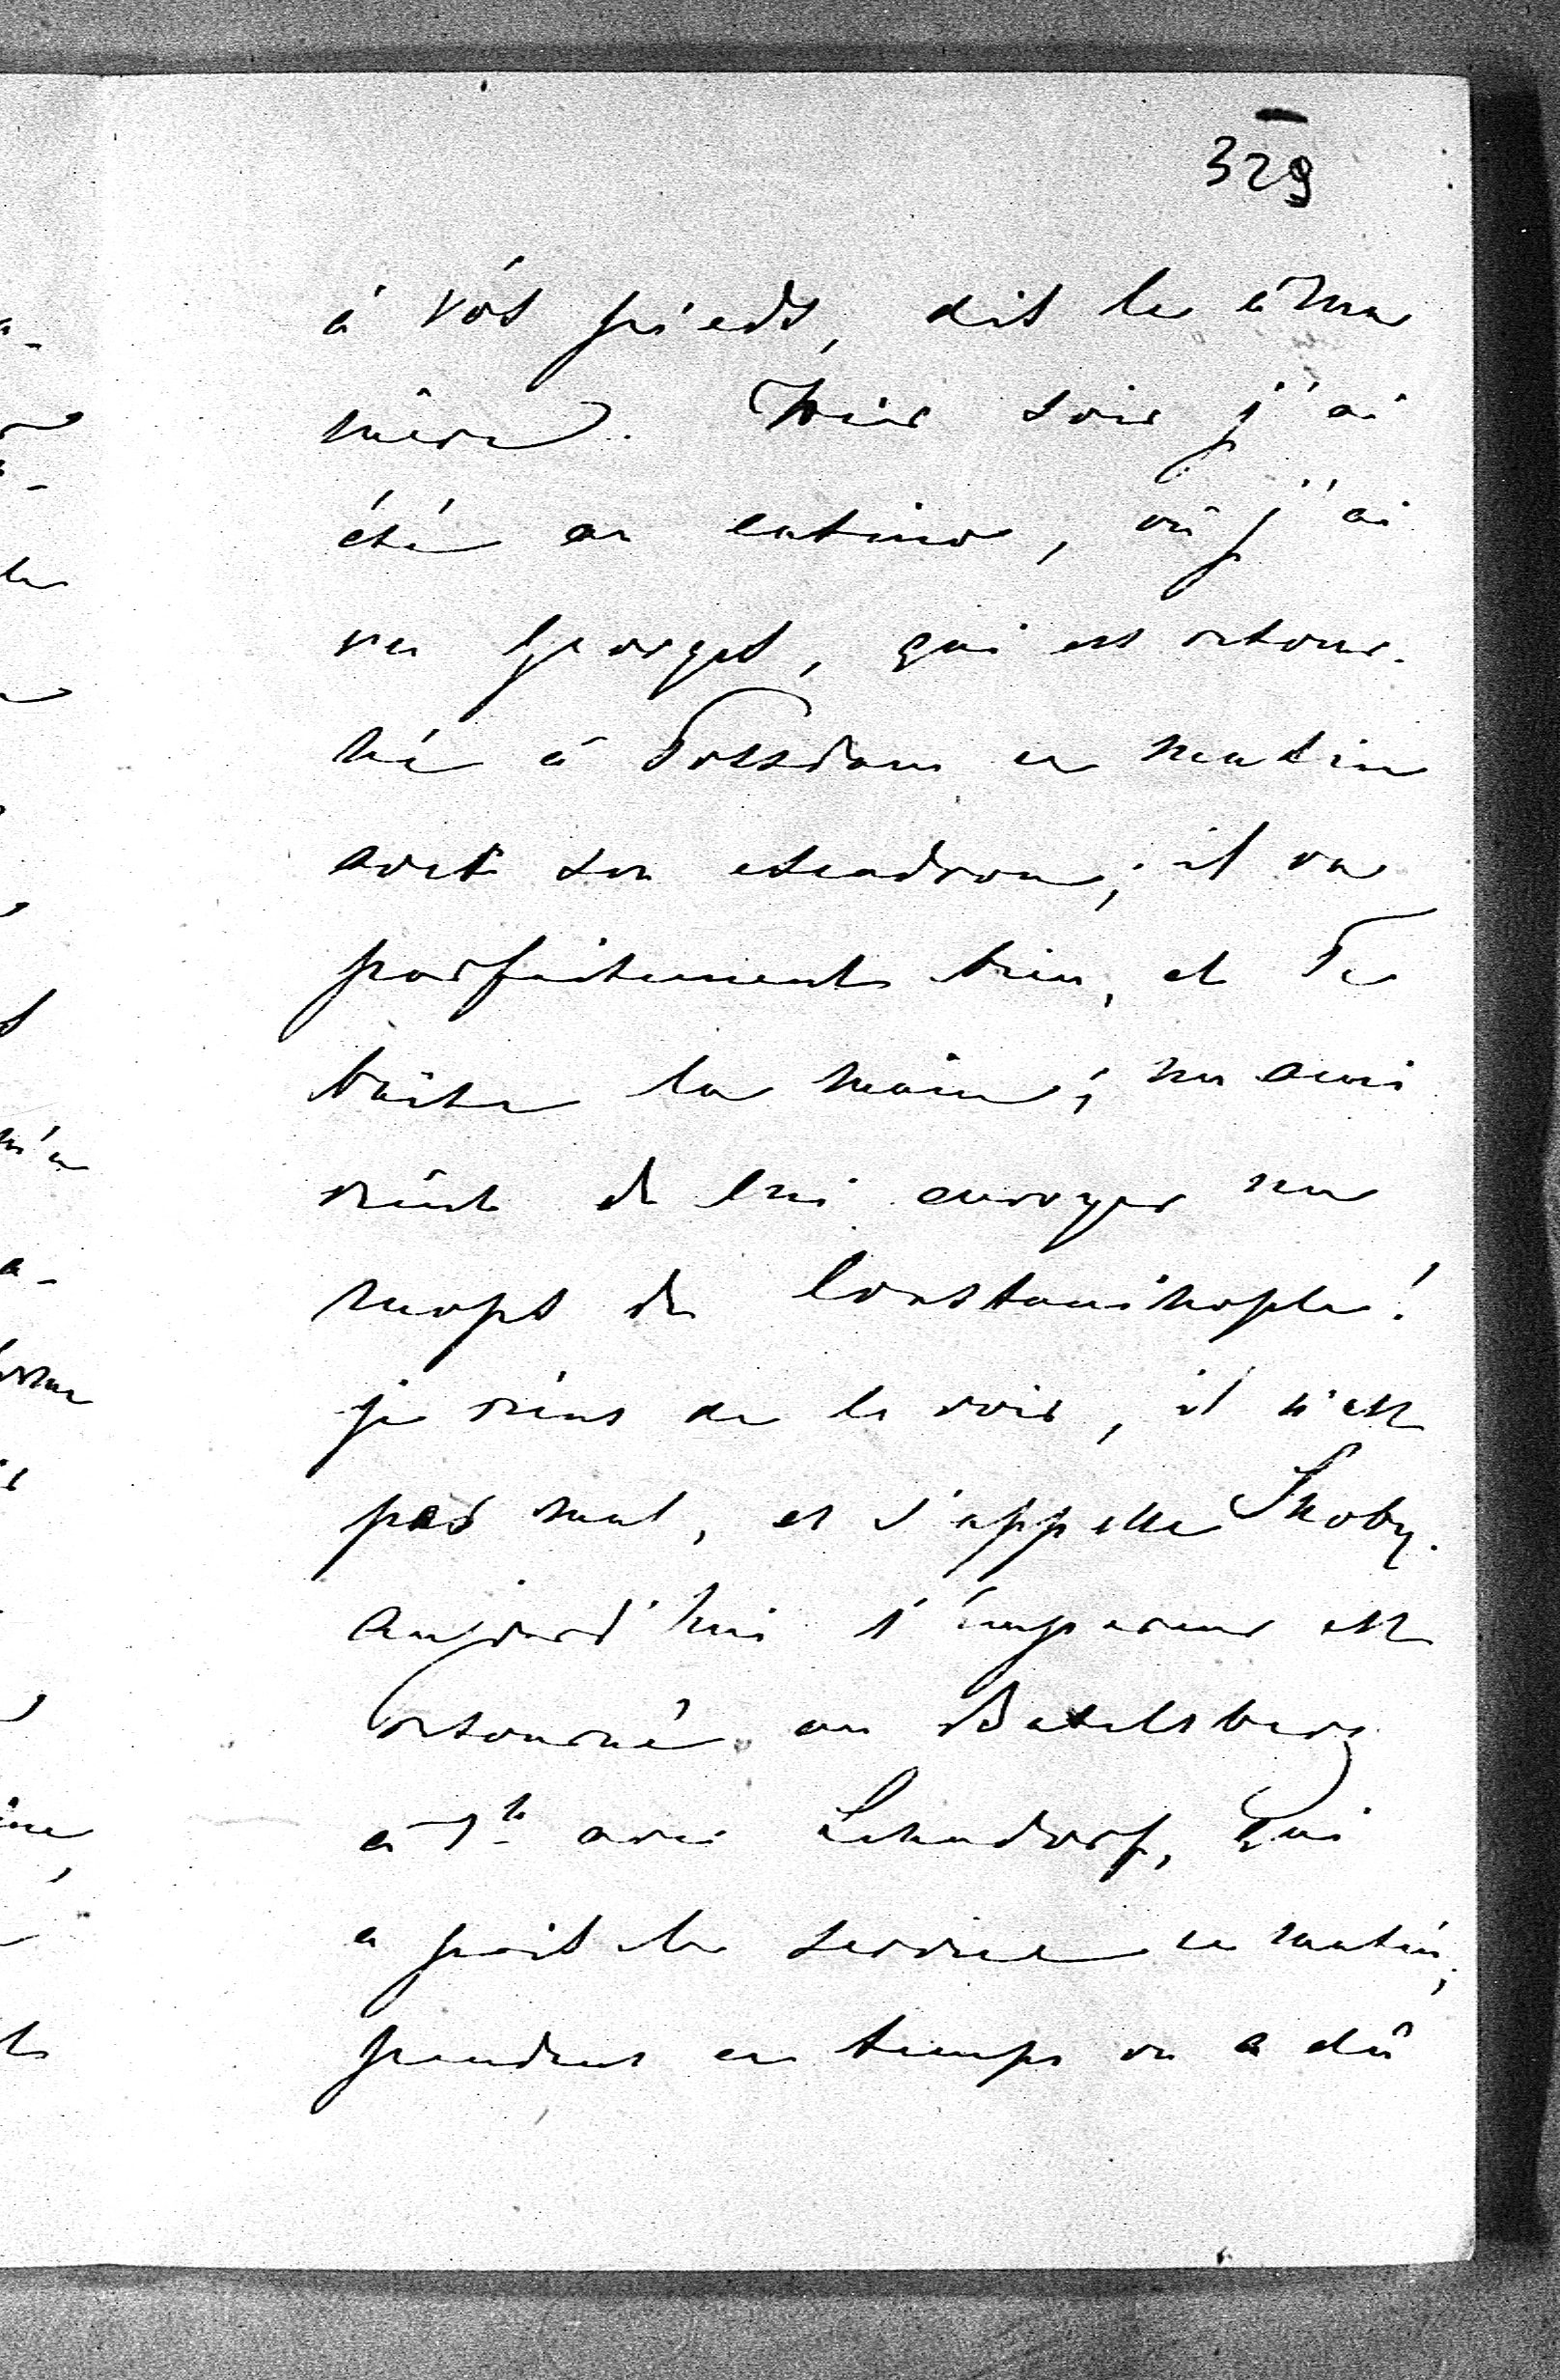 329
à vós pieds, dis le à ma
mère. Hier soir j'ai
été au casino, où j'ai
vu Georges, qui est retour-
né à Potsdam ce matin
avec son escadron; il va
parfaitement bien, et Te
baise la main; un ami
vient de lui envoyer un
mops de Constantinople!
je viens de le voir, il n'est
pas mal, et s'appelle Snoby.
aujourd'hui l'empereur est
retourné au Babelsberg
à 1h avec Lehndorf, qui
a pris le service ce matin;
pendant ce temps on a dû